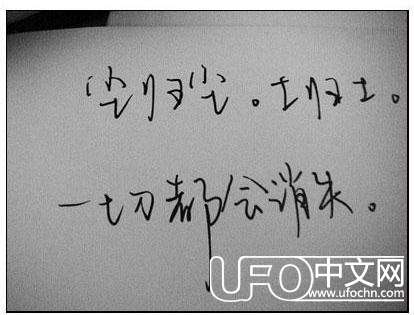 尘归尘。土归土。
一切都会消失。
UFO中文网
www.ufochn.com